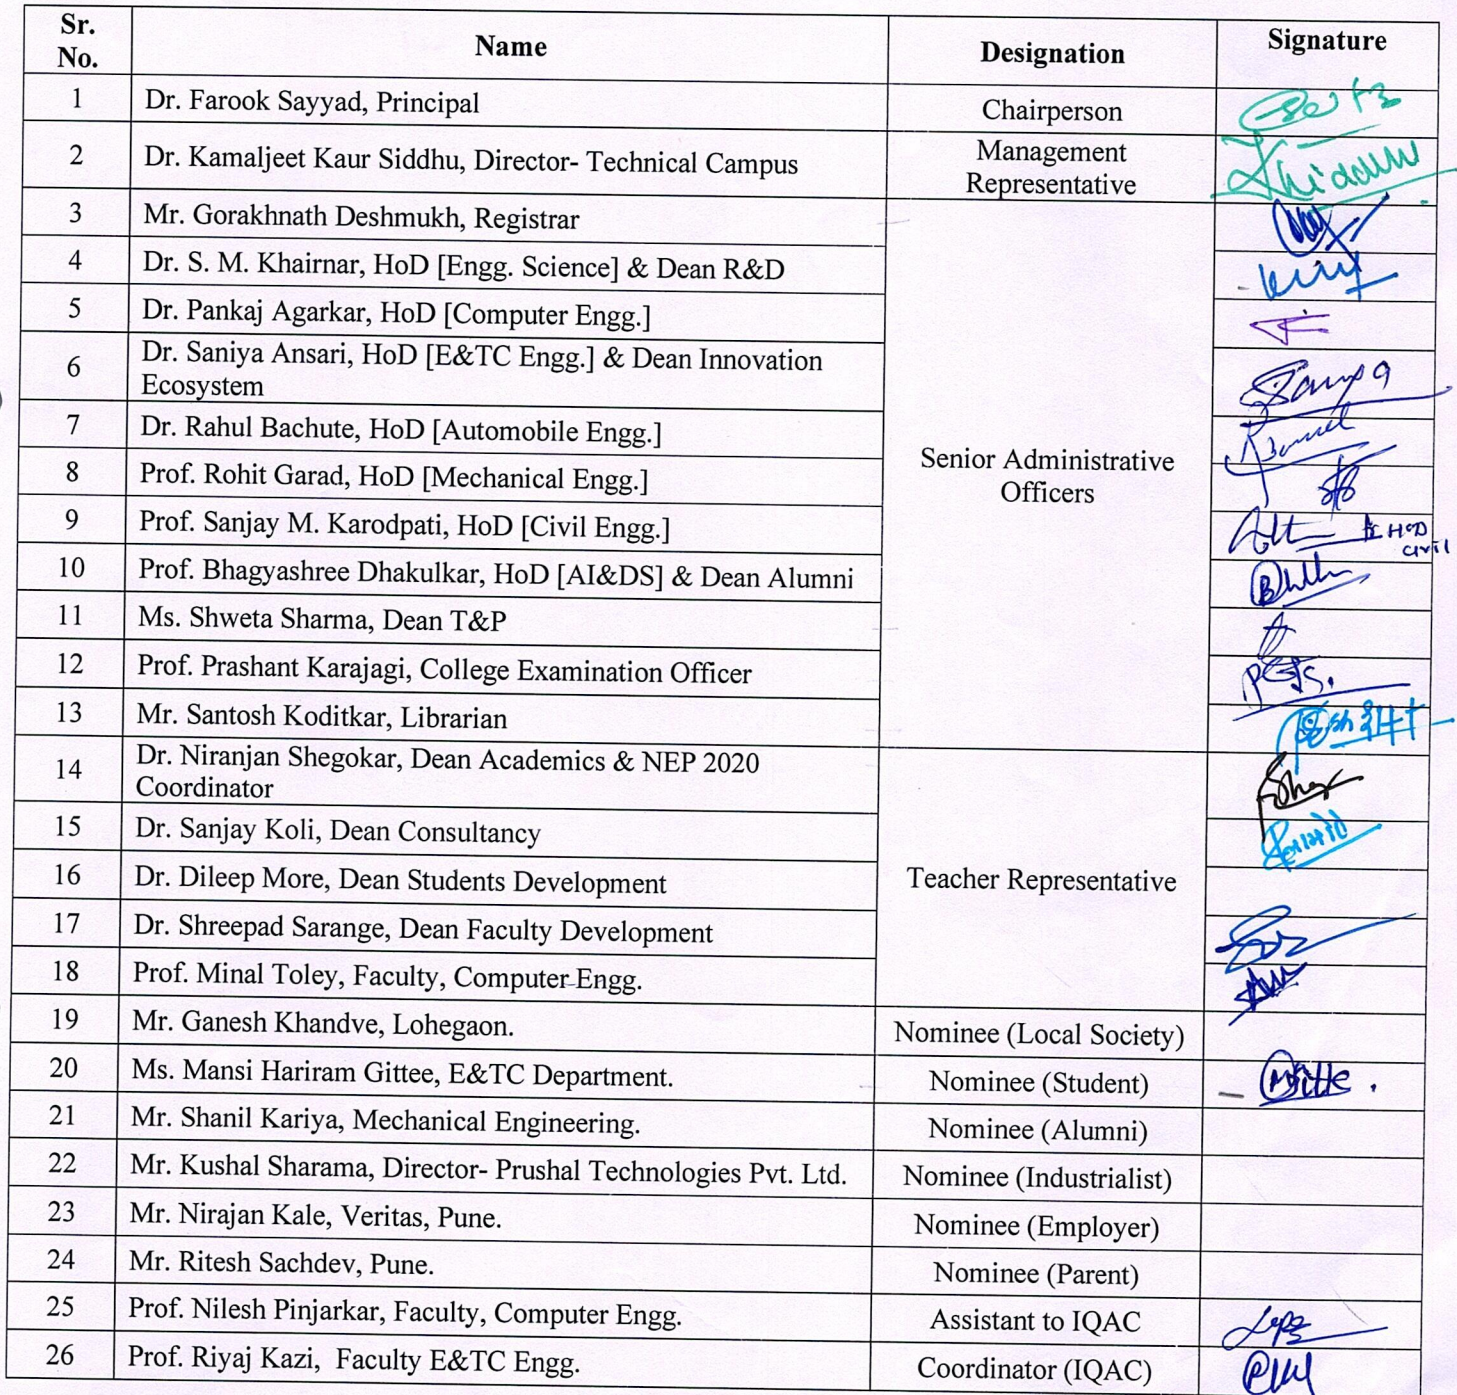 Sr. No. Name Designation Signature
1 Dr. Farook Sayyad, Principal Chairperson
2 Dr. Kamaljeet Kaur Siddhu, Director- Technical Campus Management Representative
3 Mr. Gorakhnath Deshmukh, Registrar Senior Administrative Officers
4 Dr. S. M. Khairnar, HoD [Engg. Science] & Dean R&D
5 Dr. Pankaj Agarkar, HoD [Computer Engg.]
6 Dr. Saniya Ansari, HoD [E&TC Engg.] & Dean Innovation
Ecosystem
7 Dr. Rahul Bachute, HoD [Automobile Engg.]
8 Prof. Rohit Garad, HoD [Mechanical Engg.]
9 Prof. Sanjay M. Karodpati, HoD [Civil Engg.] HOD
civil
10 Prof. Bhagyashree Dhakulkar, HoD [AI&DS] & Dean Alumni
11 Ms. Shweta Sharma, Dean T&P
12 Prof. Prashant Karajagi, College Examination Officer
13 Mr. Santosh Koditkar, Librarian
14 Dr. Niranjan Shegokar, Dean Academics & NEP 2020
Coordinator Teacher Representative
15 Dr. Sanjay Koli, Dean Consultancy
16 Dr. Dileep More, Dean Students Development
17 Dr. Shreepad Sarange, Dean Faculty Development
18 Prof. Minal Toley, Faculty, Computer Engg.
19 Mr. Ganesh Khandve, Lohegaon. Nominee (Local Society)
20 Ms. Mansi Hariram Gittee, E&TC Department. Nominee (Student)
21 Mr. Shanil Kariya, Mechanical Engineering. Nominee (Alumni)
22 Mr. Kushal Sharama, Director- Prushal Technologies Pvt. Ltd. Nominee (Industrialist)
23 Mr. Nirajan Kale, Veritas, Pune. Nominee (Employer)
24 Mr. Ritesh Sachdev, Pune. Nominee (Parent)
25 Prof. Nilesh Pinjarkar, Faculty, Computer Engg. Assistant to IQAC
26 Prof. Riyaj Kazi, Faculty E&TC Engg. Coordinator (IQAC)